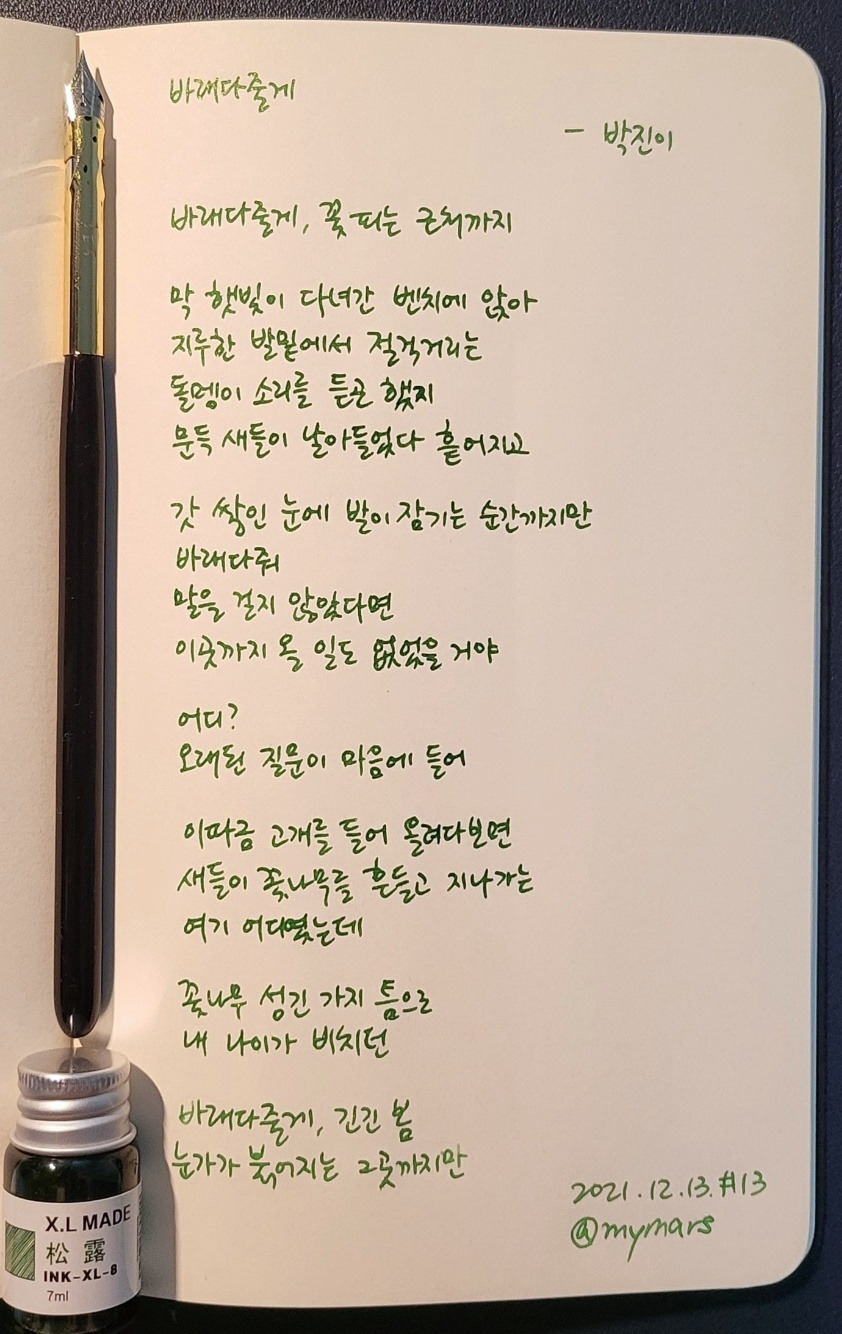 바래다줄게
- 박진이
바래다줄게, 꽃 피는 근처까지
막 햇빛이 다녀간 벤치에 앉아
지루한 발밑에서 절걱거리는
돌멩이 소리를 듣곤 했지
문득 새들이 날아들었다 흩어지고
갓 쌓인 눈에 발이 잠기는 순간까지만
바래다줘
말을 걸지 않았다면
이곳까지 올 일도 없었을 거야
어디?
오래된 질문이 마음에 들어
이따금 고개를 들어 올려다보면
새들이 꽃나무를 흔들고 지나가는
여기 어디였는데
꽃나무 성긴 가지 틈으로
내 나이가 비치던
바래다줄게, 긴긴 봄
눈가가 붉어지는 그곳까지만
2021.12.13.#13
@mymars
X.L MADE
松露
INK-XL-8
7ml